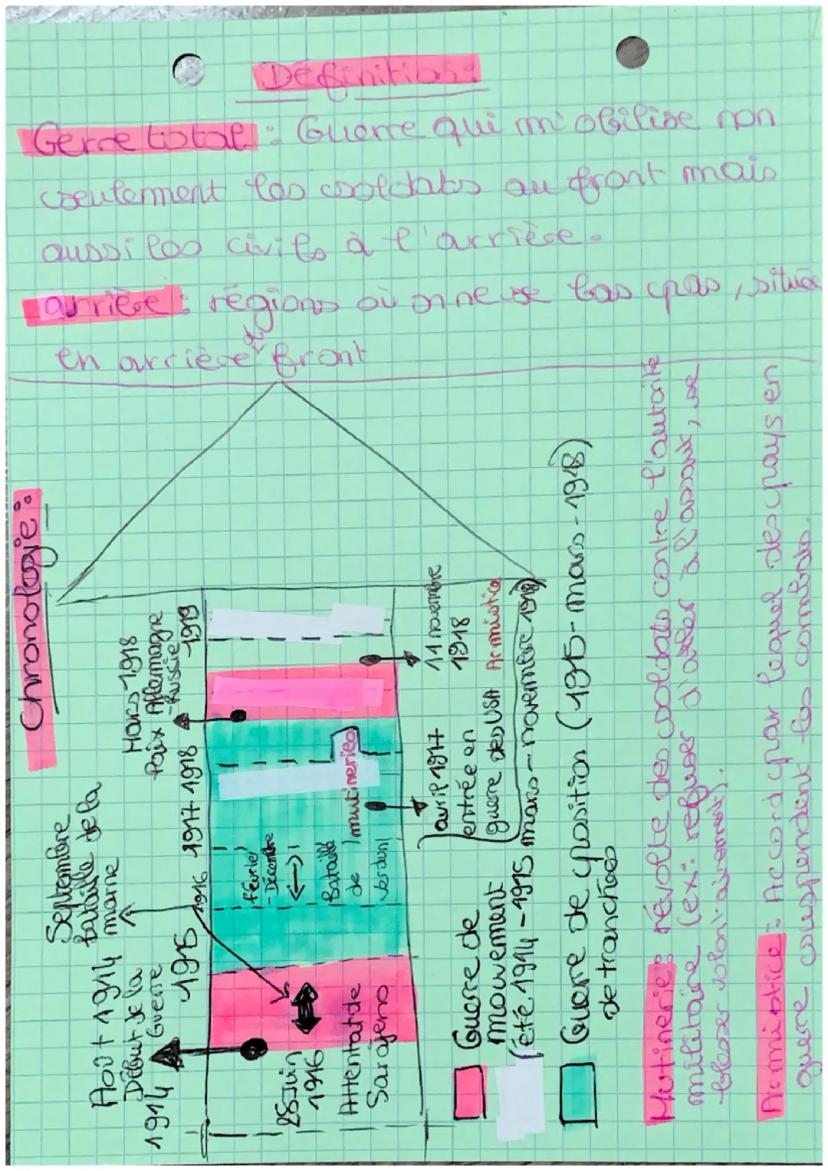 Définition:
Gerre total : Guerre qui m'obilise non
seulement les soldats au front mais
aussi les civils à l'arrière.
arrière : régions où on ne se bas pas, située
en arrière de front
Chronologie :
Août 1914
Début de la
Guerre
Septembre
bataille de la
marne
Mars 1918
Paix Allemagne
-Russie
1914
1915
1916
1917
1918
1919
28 Juin
1916
Attentat de
Sarajevo
Février
-Décembre
Bataille
de
Verdun
mutineries
avril 1917
entrée en
guerre des USA
11 novembre
1918
Armistice
Guerre de
mouvement
(été 1914 - 1915 mars - novembre 1918)
Guerre de position (1915 - mars - 1918)
de tranchées
Mutinerie : révolte des soldats contre l'autorité
militaire (ex : refuser d'aller à l'assaut, se
blesser volontairement).
Armistice : Accord par lequel des pays en
guerre suspendent les combats.